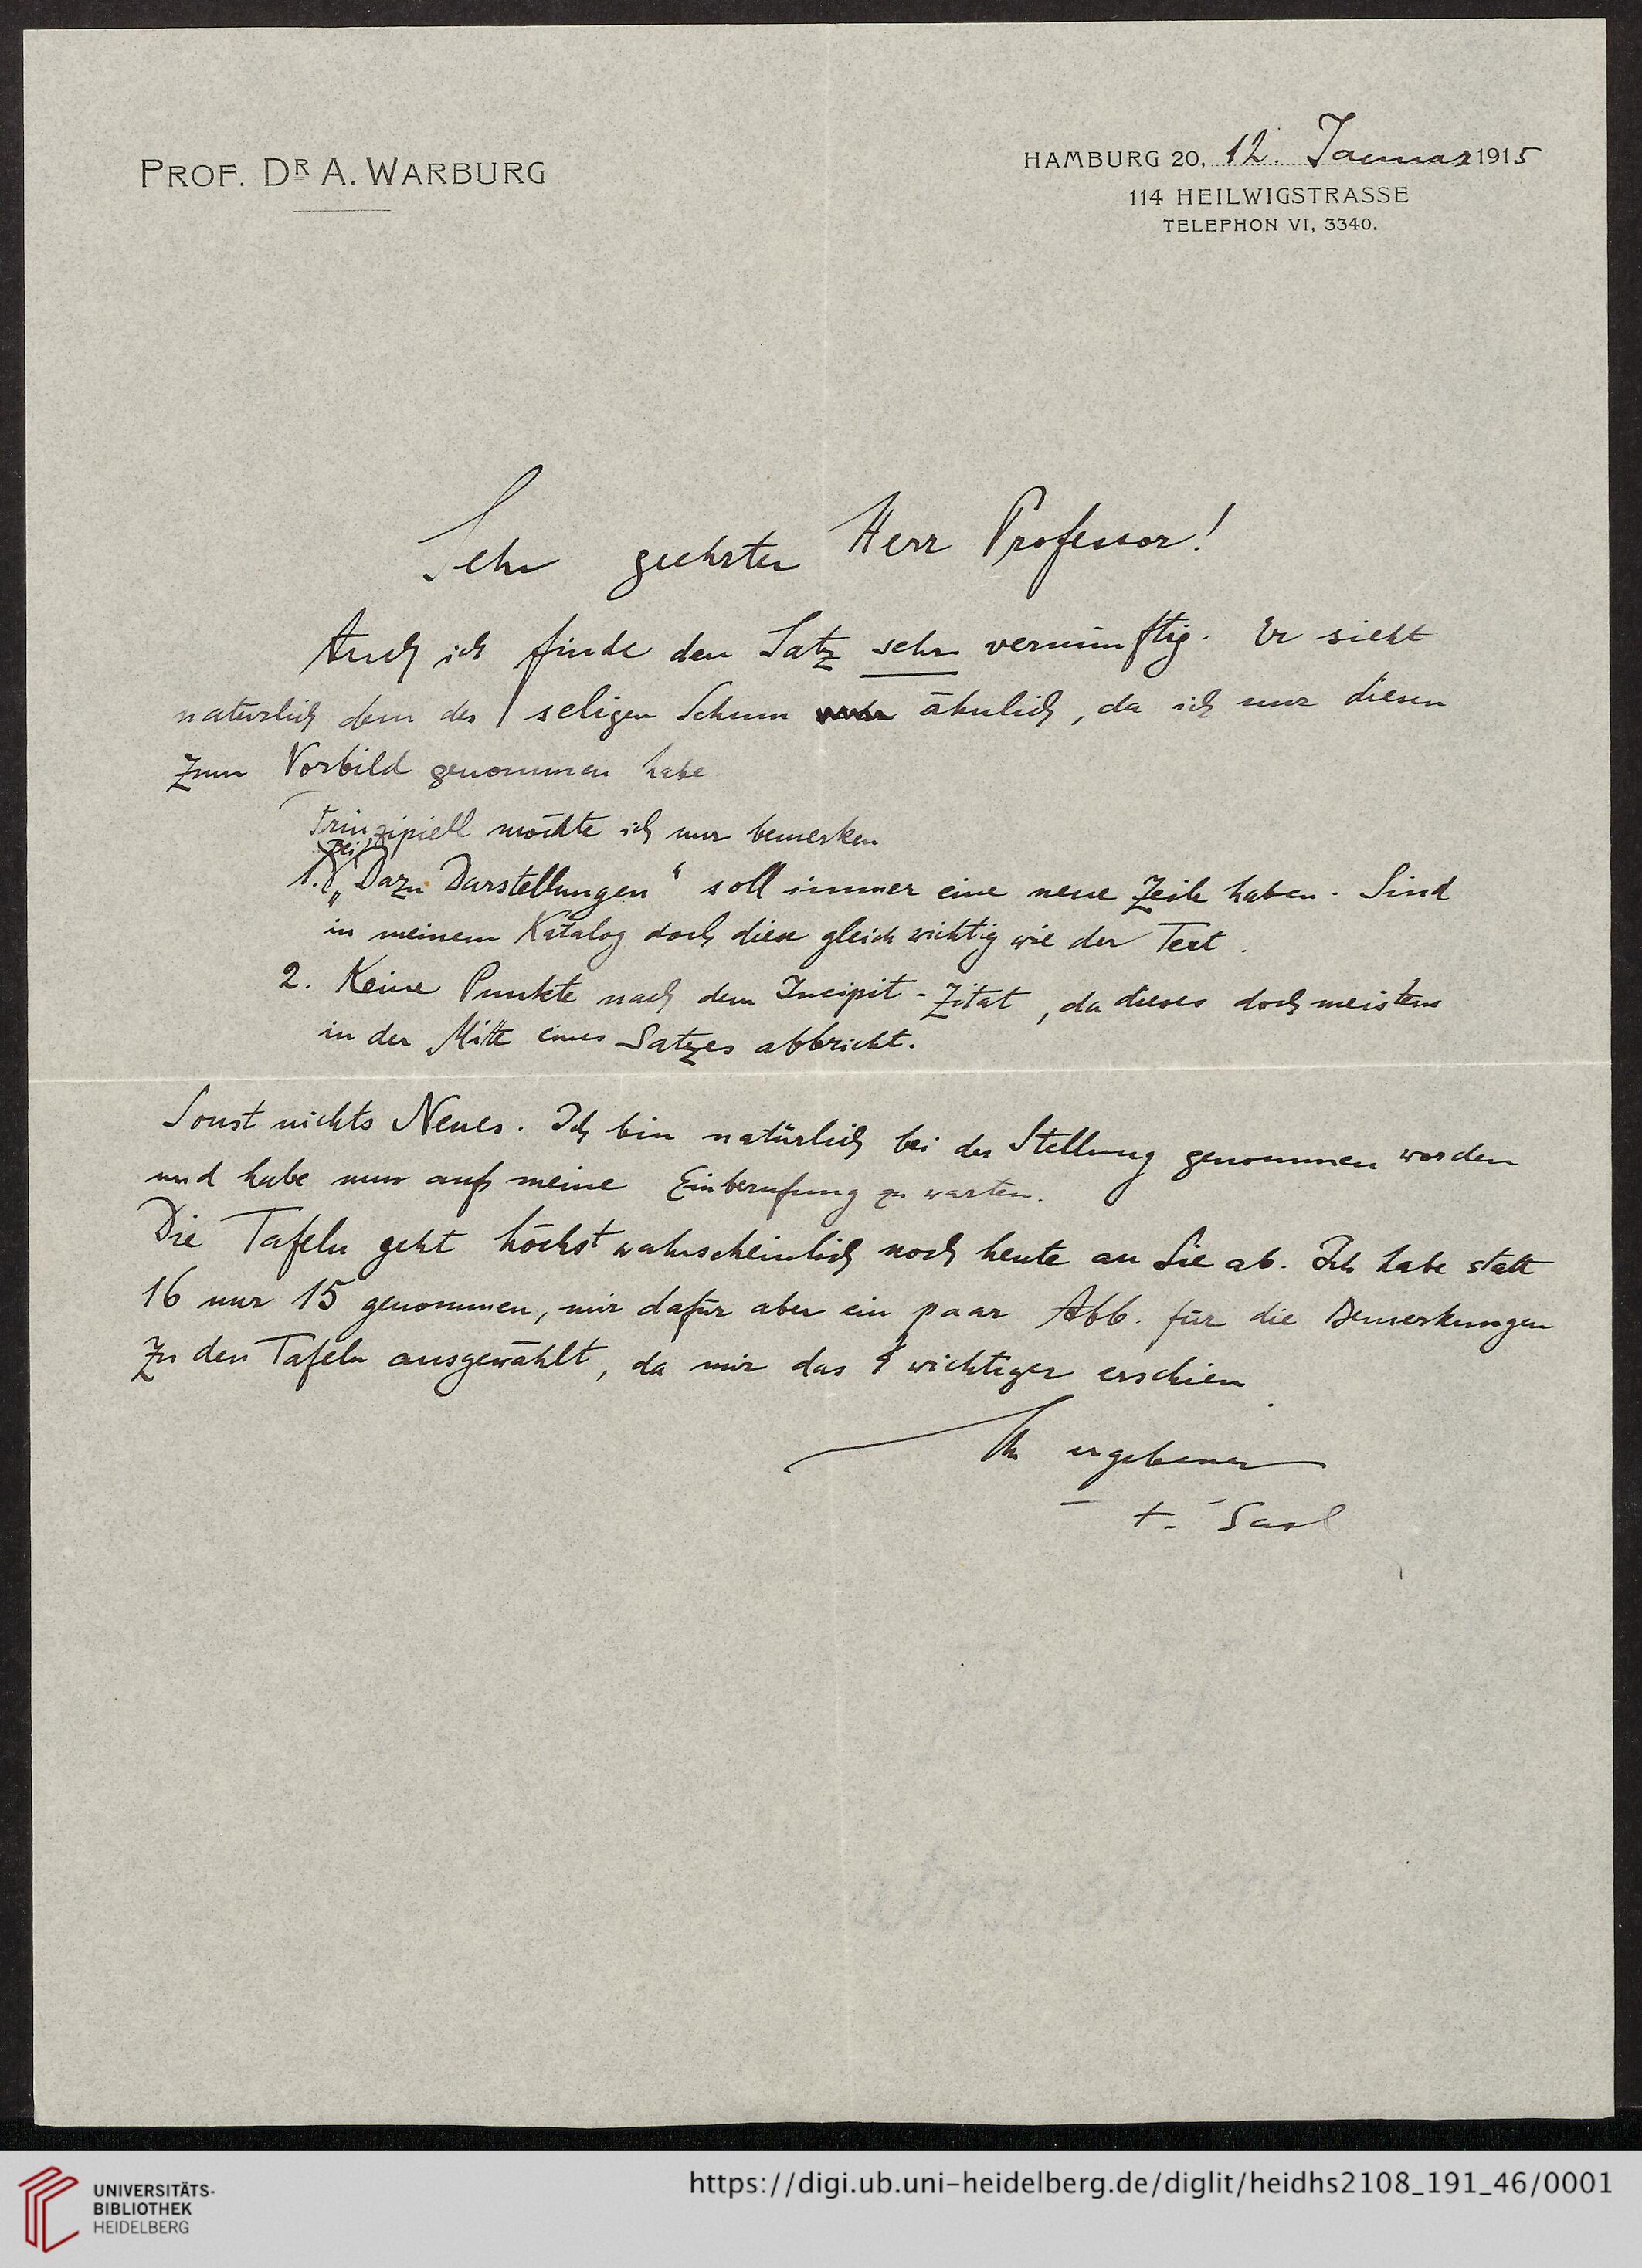 PROF. DR A. WARBURG
HAMBURG 20, 12. Januar 1915
114 HEILWIGSTRASSE
TELEPHON VI, 3340.
Sehr geehrter Herr Professor!
Auch ich finde den Satz sehr vernünftig. Er sieht
natürlich dem des seligen Schum ähnlich, da ich mir diesen
zum Vorbild genommen habe
Prinzipiell möchte ich nur bemerken
bei
1. „Dazu Darstellungen“ soll immer eine neue Zeile haben. Sind
in meinem Katalog doch diese gleich wichtig wie der Text.
2. Keine Punkte nach dem Incipit-Zitat, da dieses doch meistens
in der Mitte eines Satzes abbricht.
Sonst nichts Neues. Ich bin natürlich bei der Stellung genommen worden
und habe nun auf meine Einberufung zu warten.
Die Tafeln geht höchst wahrscheinlich noch heute an Sie ab. Ich habe statt
16 nur 15 genommen, mir dafür aber ein paar Abb. für die Bemerkungen
zu den Tafeln ausgewählt, da mir das wichtiger erschien.
Ihr ergebener
F. Saxl
UNIVERSITÄTS-
BIBLIOTHEK
HEIDELBERG
https://digi.ub.uni-heidelberg.de/diglit/heidhs2108_191_46/0001